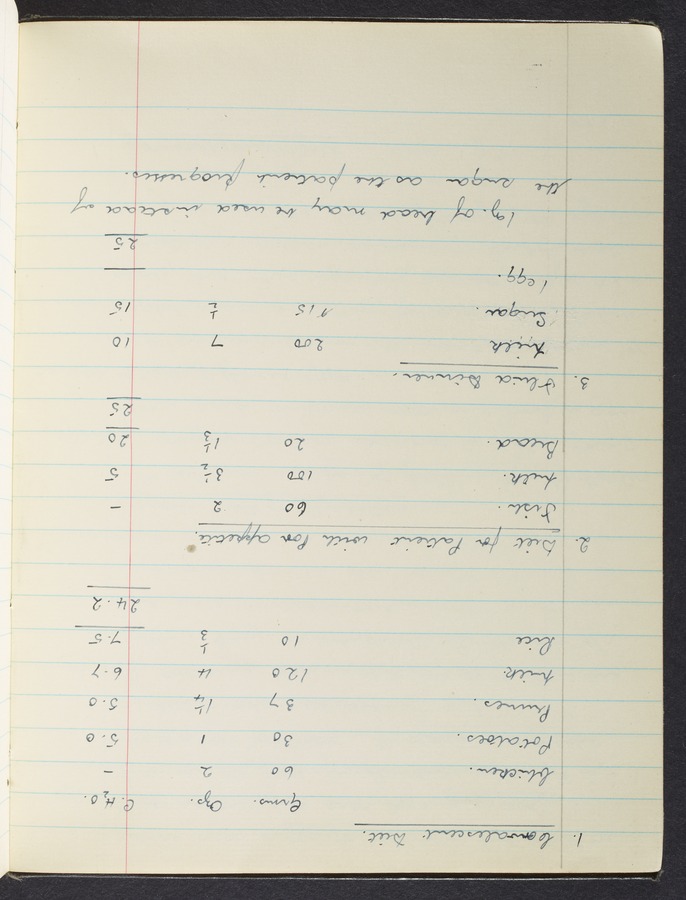 1. Convalescent Diet.
Grms. Ozs. C.H₂O.
Chicken. 60 2 –
Potatoes. 30 1 5.0
Prunes. 37 1¼ 5.0
Milk. 120 4 6.7
Rice 10 ⅓ 7.5
24.2
2. Diet for Patient with Poor appetite.
Fish. 60 2 –
Milk. 100 3½ 5
Bread. 20 1⅓ 20
25
3. Fluid Dinner.
Milk 200 7 10
Sugar. 15 ½ 15
1 egg.
25
1 oz. of bread may be used instead of
the sugar as the patient progresses.